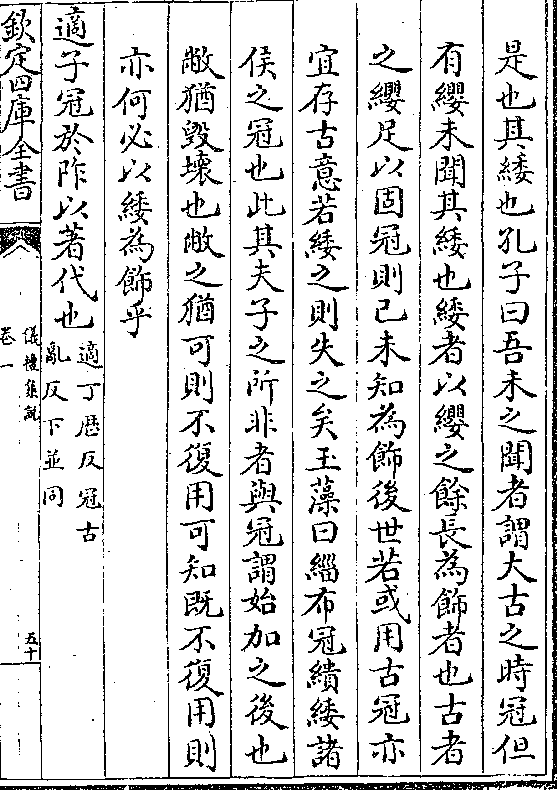 是也其緌也孔子曰吾未之聞者謂大古之時冠但
有纓未聞其緌也緌者以纓之餘長為飾者也古者
之纓足以固冠則已未知為飾後世若或用古冠亦
宜存古意若緌之則失之矣玉藻曰緇布冠繢緌諸
侯之冠也此其夫子之所非者與冠謂始加之後也
敝猶毀壞也敝之猶可則不復用可知既不復用則
亦何必以緌為飾乎
適子冠於阼以著代也適丁歴反冠古
亂反下並同
欽定四庫全書
儀禮集說
卷一
五十